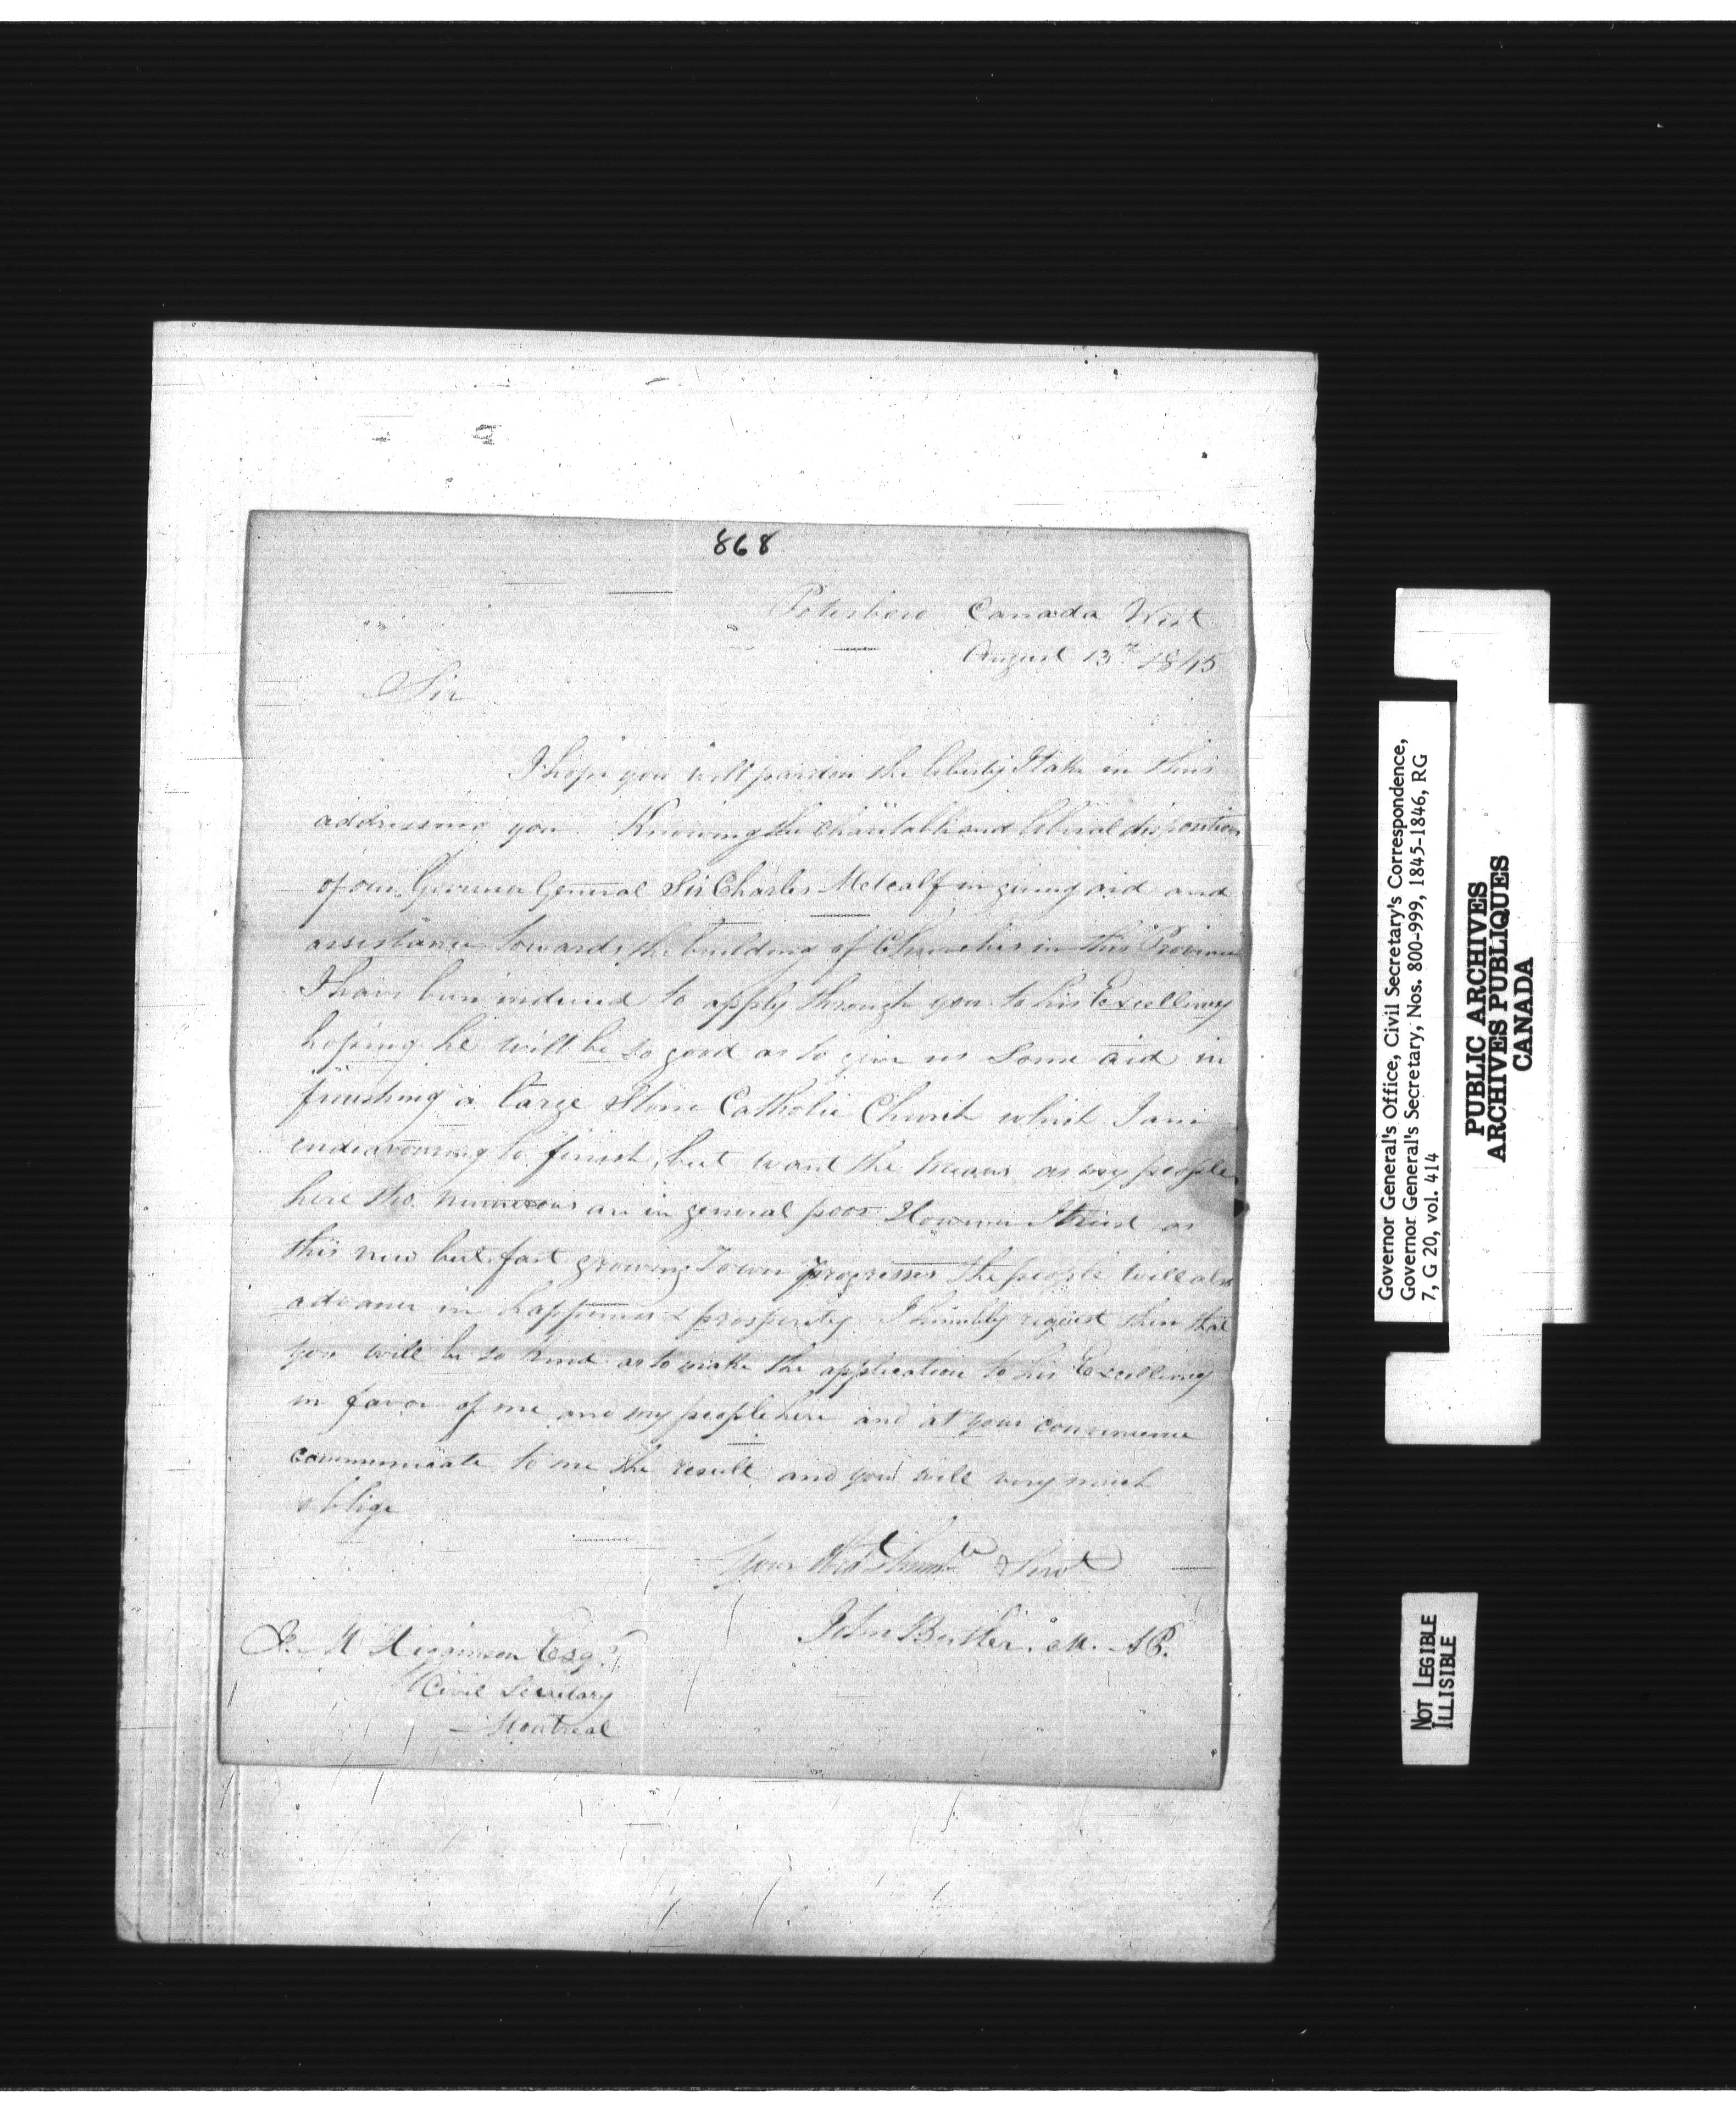 868
Peterboro Canada West
August 13th 1845
Sir
I hope you will pardon the liberty I take in thus
addressing you. Knowing the charitable and liberal disposition
of our Governor General Sir Charles Metcalf in giving aid and
assistance towards the building of Churches in this Province
I have been induced to apply through you to his Excellency
hoping he will be so good as to give us some aid in
finishing a large Stone Catholic Church which I am
endeavouring to finish, but want the means as my people
here tho numerous are in general poor However I trust as
this new but fast growing Town progresses the people will also
advance in happiness & prosperity I humbly request then that
you will be so kind as to make the application to his Excellency
in favor of me and my people here and at your convenience
communicate to me the result and you will very much
oblige
Your Obdt Humble Servt
John Butler. M. A P.
J. M Higginson Esqr
Civil Secretary
Montreal
Governor General's Office, Civil Secretary's Correspondence,
Governor General's Secretary, Nos. 800-999, 1845-1846, RG
7, G 20, vol. 414
PUBLIC ARCHIVES
ARCHIVES PUBLIQUES
CANADA
NOT LEGIBLE
ILLISIBLE